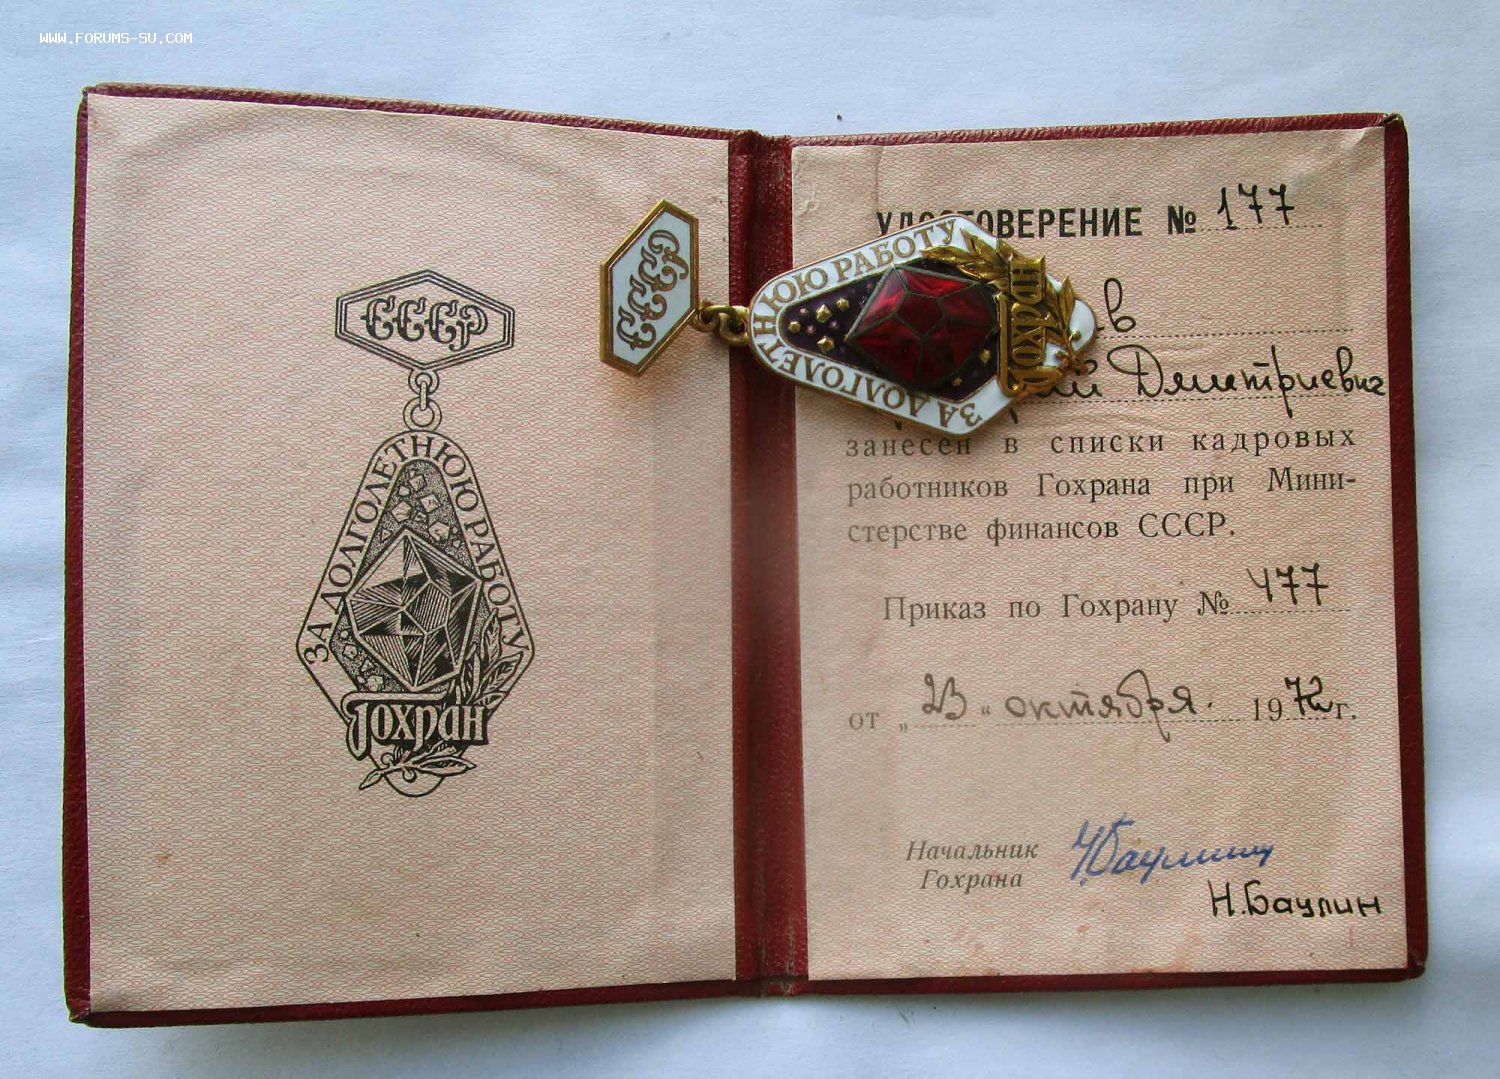 WWW.FORUMS-SU.COM
СССР
ЗА ДОЛГОЛЕТНЮЮ РАБОТУ
Гохран
СССР
ЗА ДОЛГОЛЕТНЮЮ РАБОТУ
Гохран
УДОСТОВЕРЕНИЕ № 177
Дмитриевич
занесен в списки кадровых
работников Гохрана при Мини-
стерстве финансов СССР.
Приказ по Гохрану № 477
от „23“ октября 1972 г.
Начальник
Гохрана
Н.Баулин